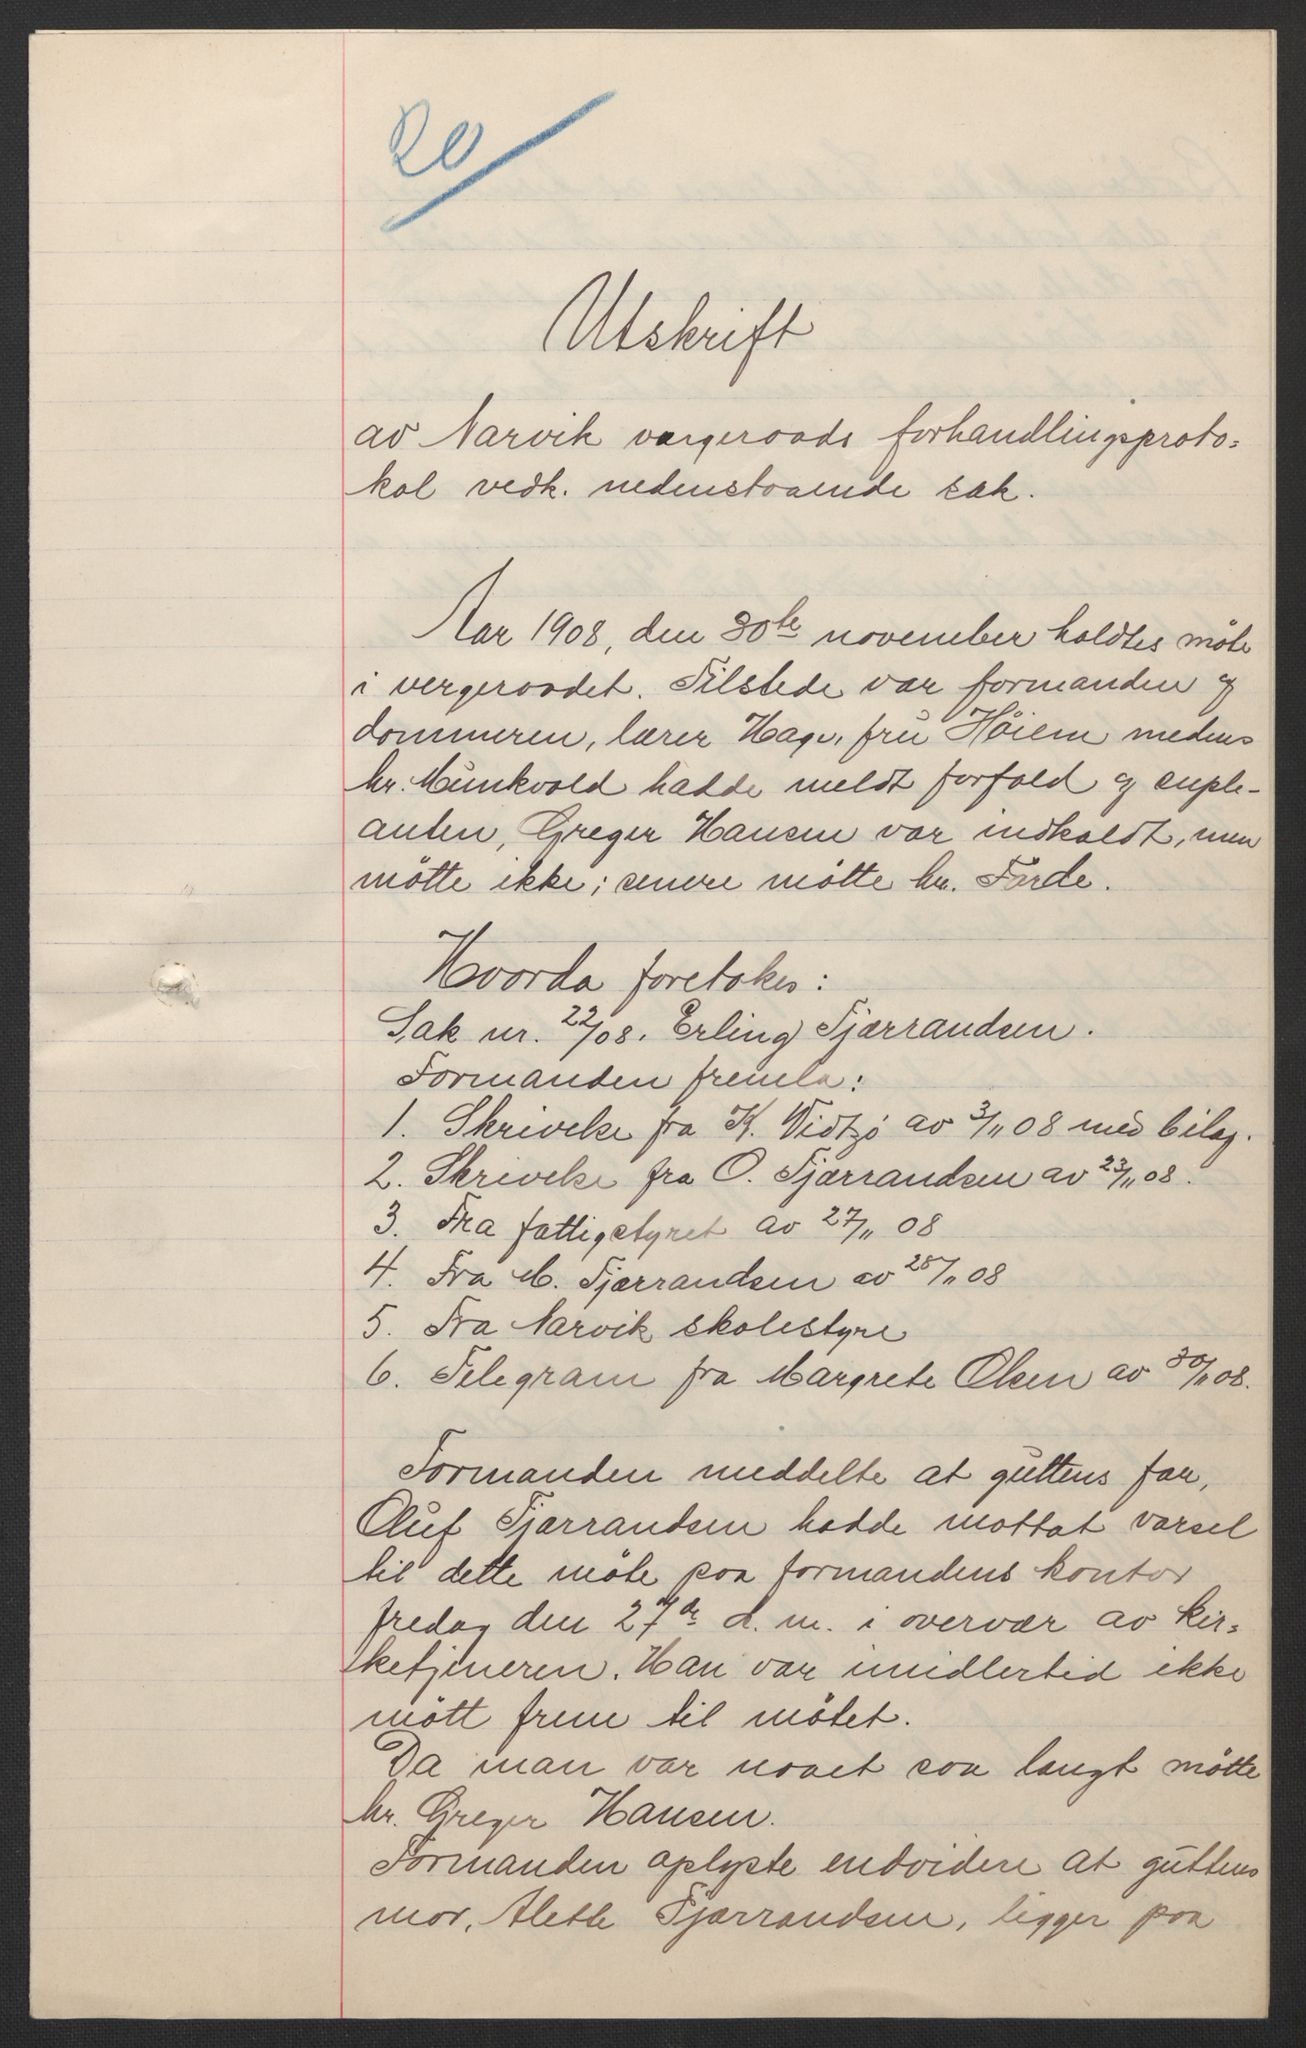 20
Utskrift
av Narvik vergeraads forhandlingsproto=
kol vedk. nedenstaaende sak.
Aar 1908, den 30te november holdtes möte
i vergeraadet. Tilstede var formanden og
dommeren, lærer Hage, fru Höiem medens
hr. Munkvold hadde meldt forfald og suple-
anten, Greger Hansen var indkaldt, men
mötte ikke; senere mötte hr. Förde.
Hvorda foretokes:
Sak nr. 22/08. Erling Fjærrandsen.
Formanden fremla:
1. Skrivelse fra K. Vidtzö av 3/11 08 med bilag.
2. Skrivelse fra O. Fjærrandsen av 23/11 08.
3. Fra fattigstyret av 27/11 08
4. Fra M. Fjærrandsen av 28/11 08
5. Fra Narvik skolestyre
6. Telegram fra Margrete Olsen av 30/11 08.
Formanden meddelte at guttens far,
Oluf Fjærrandsen hadde mottat varsel
til dette möte paa formandens kontor
fredag den 27de d. m. i overvær av kir=
ketjeneren. Han var imidlertid ikke
mött frem til mötet.
Da man var naaet saa langt mötte
hr. Greger Hansen.
Formanden oplyste endvidere at guttens
mor, Alette Fjærrandsen, ligger paa